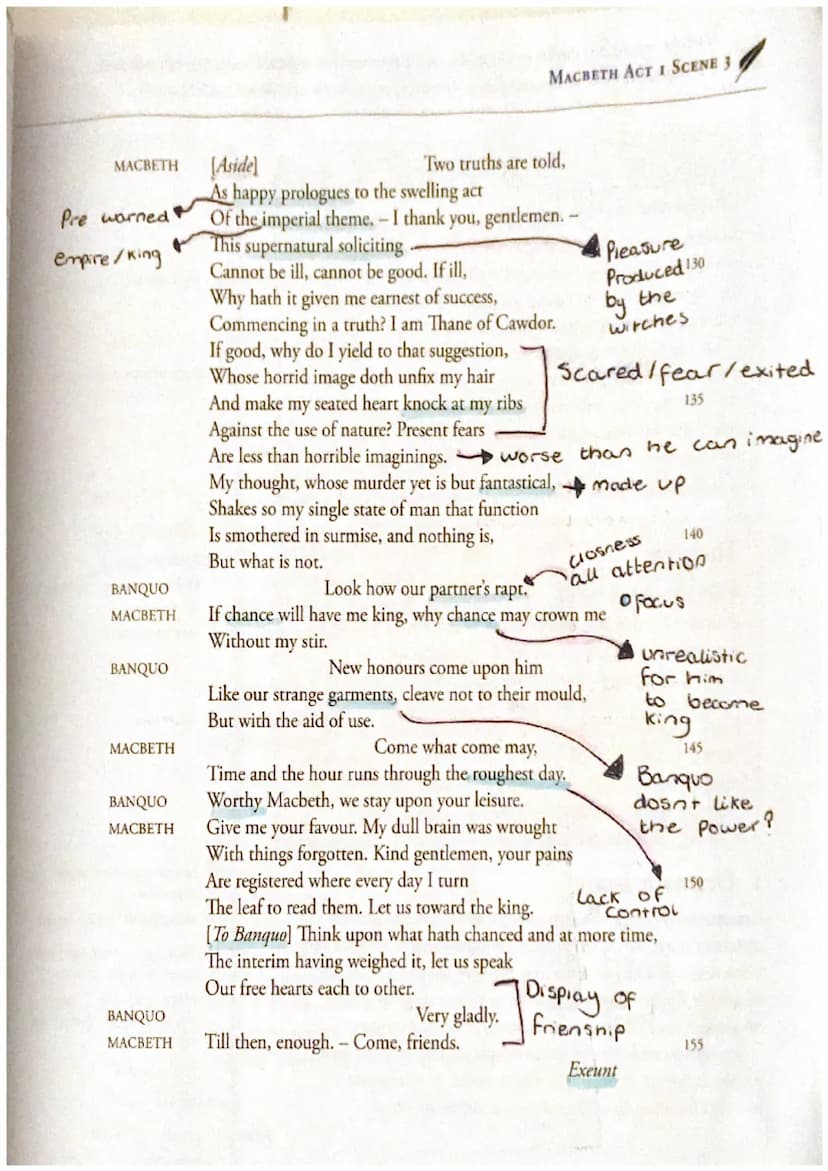 MACBETH ACT 1 SCENE 3
MACBETH [Aside] Two truths are told,
As happy prologues to the swelling act
Pre warned Of the imperial theme. – I thank you, gentlemen. –
empire/king This supernatural soliciting Pleasure
Cannot be ill, cannot be good. If ill, Produced 130
Why hath it given me earnest of success, by the
Commencing in a truth? I am Thane of Cawdor. witches
If good, why do I yield to that suggestion,
Whose horrid image doth unfix my hair Scared/fear/exited
And make my seated heart knock at my ribs 135
Against the use of nature? Present fears
Are less than horrible imaginings. → worse than he can imagine
My thought, whose murder yet is but fantastical, → made up
Shakes so my single state of man that function
Is smothered in surmise, and nothing is, 140
But what is not. closness all attention
BANQUO Look how our partner's rapt.
MACBETH If chance will have me king, why chance may crown me focus
Without my stir. unrealistic
BANQUO New honours come upon him for him
Like our strange garments, cleave not to their mould, to become
But with the aid of use. king
MACBETH Come what come may, 145
Time and the hour runs through the roughest day. Banquo
BANQUO Worthy Macbeth, we stay upon your leisure. dosnt like
MACBETH Give me your favour. My dull brain was wrought the power?
With things forgotten. Kind gentlemen, your pains
Are registered where every day I turn 150
The leaf to read them. Let us toward the king. Lack of control
[To Banquo] Think upon what hath chanced and at more time,
The interim having weighed it, let us speak
Our free hearts each to other. Display of
BANQUO Very gladly. frienship
MACBETH Till then, enough. – Come, friends. 155
Exeunt